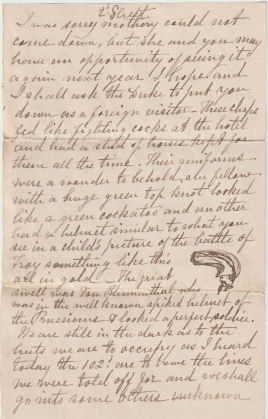 2d Sheet
I was sorry mother could not
come down, but she and you may
have an opportunity of seeing it
again next year I hope and
I shall ask the Duke to put you
down as a foreign visitor – These chaps
fed like fighting cocks at the hotel
and had a stud of horses kept for
them all the time – Their uniforms
were a wonder to behold, one fellow
with a huge green top knot looked
like a green cockatoo and another
had a helmet similar to what you
see in a child's picture of the battle of
Troy something like this
all in gold – The great
swell was Von Blumenthal who
was in the well known spiked helmet of
the Prussians & looked a perfect soldier.
We are still in the dark as to the
huts we are to occupy as I heard
today the 102d are to have the lines
we were told off for and we shall
go into some others unknown